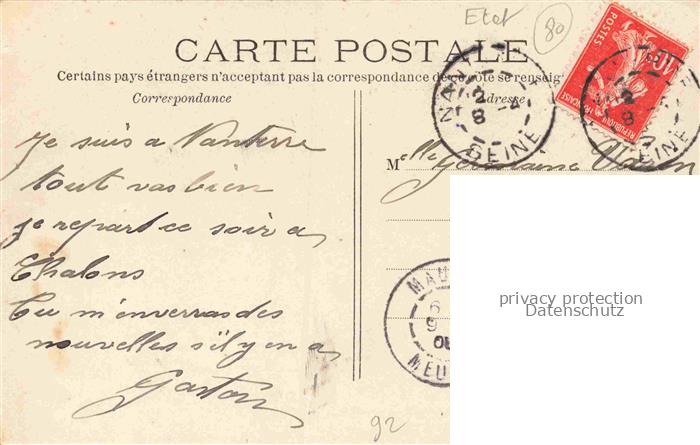 Etat 80
CARTE POSTALE
Certains pays étrangers n'acceptant pas la correspondance de ce côté se renseig
Correspondance
Adresse
POSTES
REPUBLIQUE FRANÇAISE
SEINE
Je suis a Nanterre
tout vas bien
je repart ce soir a
Chalons
Tu m'enverras des
nouvelles s'il y en a
Gaston
Mlle Germaine
MAU
6
9
MEU
privacy protection
Datenschutz
92